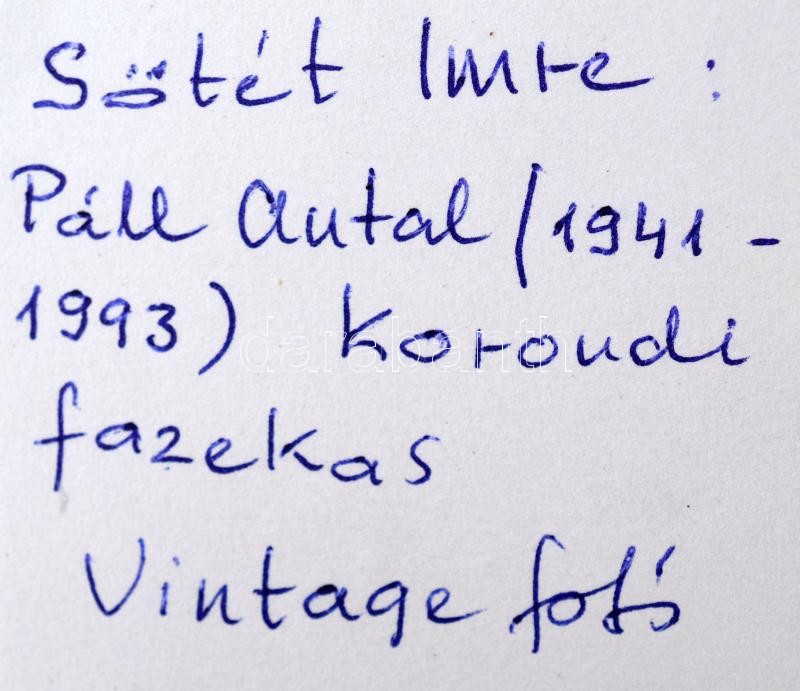 Sötét Imre :
Páll Antal (1941 -
1993) Korondi
darabanth
fazekas
Vintage fotó